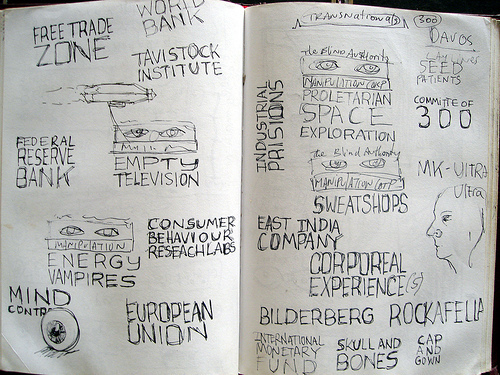 FREE TRADE
ZONE
WORLD
BANK
TAVISTOCK
INSTITUTE
FEDERAL
RESERVE
BANK
EMPTY
TELEVISION
MANIPULATION
ENERGY
VAMPIRES
CONSUMER
BEHAVIOUR
RESEACH LABS
MIND
CONTR
EUROPEAN
UNION
TRANSNATIONAl(s)
300
DAVOS
The Blind Authority
MANIPULATION CORP
PROLETARIAN
SPACE
EXPLORATION
SEED
PATIENTS
COMMITE OF
300
INDUSTRIAL
PRISIONS
The Blind Authority
MANIPULATION CORP
SWEATSHOPS
MK-UltRA
Ultra
EAST INDIA
COMPANY
CORPOREAL
EXPERIENCE(S)
BILDERBERG ROCKAFELLA
INTERNATIONAL
MONETARY
FUND
SKULL AND
BONES
CAP
AND
GOWN